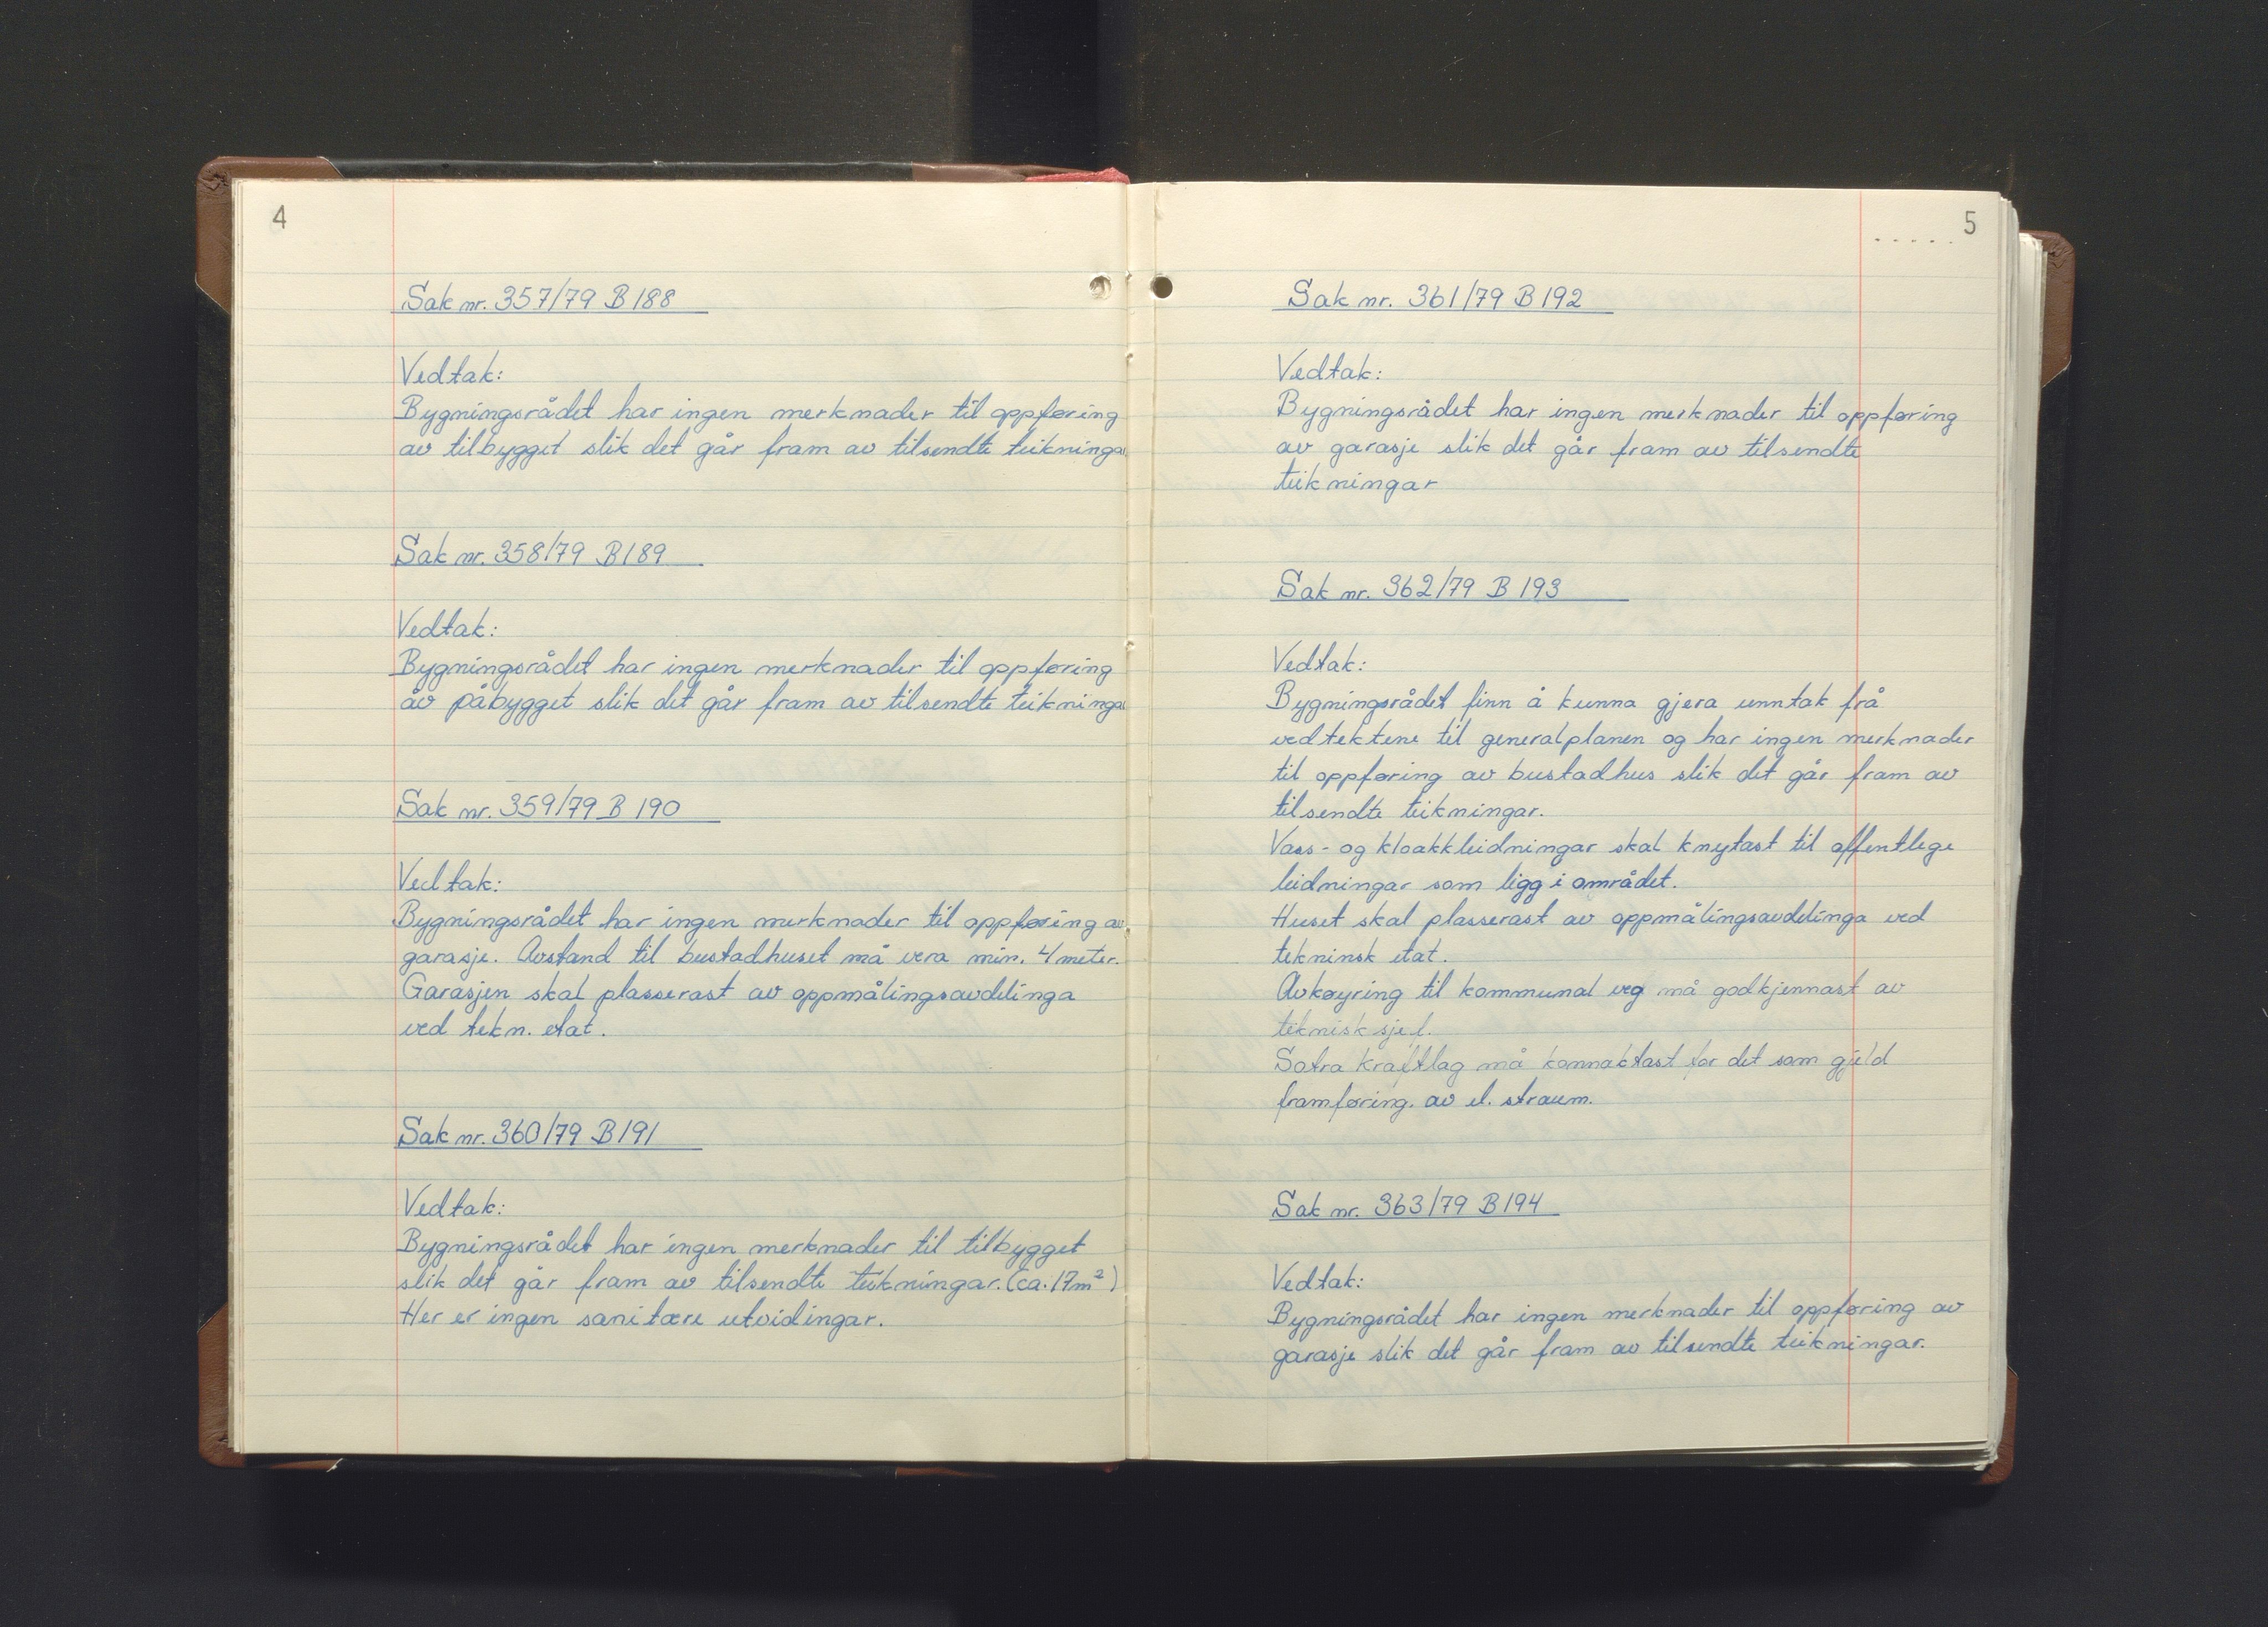 4
Sak nr. 357/79 B 188
Vedtak:
Bygningsrådet har ingen merknader til oppføring
av tilbygget slik det går fram av tilsendte teikningar
Sak nr. 358/79 B 189
Vedtak:
Bygningsrådet har ingen merknader til oppføring
av påbygget slik det går fram av tilsendte teikningar
Sak nr. 359/79 B 190
Vedtak:
Bygningsrådet har ingen merknader til oppføring av
garasje. Avstand til bustadhuset må vera min. 4 meter.
Garasjen skal plasserast av oppmålingsavdelinga
ved tekn. etat.
Sak nr. 360/79 B 191
Vedtak:
Bygningsrådet har ingen merknader til tilbygget
slik det går fram av tilsendte teikningar. (ca. 17m²)
Her er ingen sanitære utvidingar.
5
Sak nr. 361/79 B 192
Vedtak:
Bygningsrådet har ingen merknader til oppføring
av garasje slik det går fram av tilsendte
teikningar
Sak nr. 362/79 B 193
Vedtak:
Bygningsrådet finn å kunna gjera unntak frå
vedtektene til generalplanen og har ingen merknader
til oppføring av bustadhus slik det går fram av
tilsendte teikningar.
Vass- og kloakkleidningar skal knytast til offentlege
leidningar som ligg i området.
Huset skal plasserast av oppmålingsavdelinga ved
tekninsk etat.
Avkøyring til kommunal veg må godkjennast av
teknisk sjef.
Sotra kraftlag må konnaktast for det som gjeld
framføring. av el. straum.
Sak nr. 363/79 B 194
Vedtak:
Bygningsrådet har ingen merknader til oppføring av
garasje slik det går fram av tilsendte teikningar.